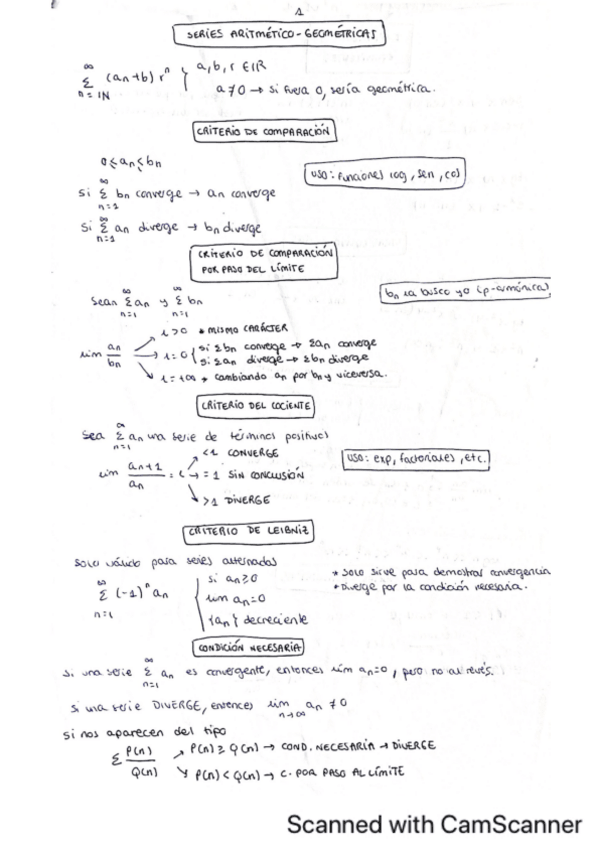 1
SERIES ARITMÉTICO-GEOMÉTRICAS
∞
Σ (an+b) rⁿ } a, b, r ∈ IR
n = IN
a ≠ 0 → si fuera 0, sería geométrica.
CRITERIO DE COMPARACIÓN
0 ≤ an ≤ bn
USO: Funciones log, sen, cos
∞
Si Σ bn converge → an converge
n=1
∞
Si Σ an diverge → bn diverge
n=1
CRITERIO DE COMPARACIÓN
POR PASO DEL LÍMITE
bn la busco yo (p-armónica)
∞ ∞
Sean Σ an y Σ bn
n=1 n=1
l > 0 * MISMO CARÁCTER
lim an/bn → l = 0 { si Σ bn converge → Σ an converge
si Σ an diverge → Σ bn diverge
l = +∞ * cambiando an por bn y viceversa.
CRITERIO DEL COCIENTE
∞
Sea Σ an una serie de términos positivos
n=1
<1 CONVERGE
USO: exp, factoriales, etc.
lim an+1/an = l → = 1 SIN CONCLUSIÓN
>1 DIVERGE
CRITERIO DE LEIBNIZ
Solo válido para series alternadas
∞
Σ (-1)ⁿ an
n=1
si an ≥ 0
lim an = 0
{an} decreciente
* Solo sirve para demostrar convergencia
* Diverge por la condición necesaria.
CONDICIÓN NECESARIA
∞
Si una serie Σ an es convergente, entonces lim an = 0, pero no al revés.
n=1
Si una serie DIVERGE, entonces lim an ≠ 0
n→∞
Si nos aparecen del tipo
Σ P(n)/Q(n)
P(n) ≥ Q(n) → COND. NECESARIA → DIVERGE
P(n) < Q(n) → C. POR PASO AL LÍMITE
Scanned with CamScanner